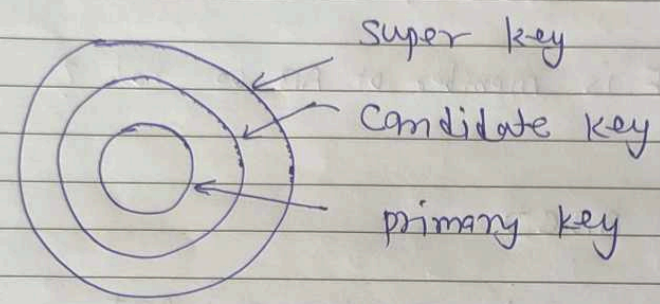 Super key
Candidate key
primary key